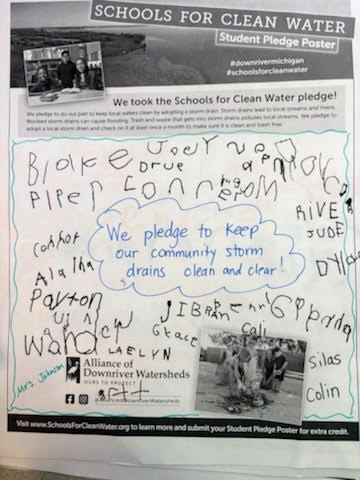 SCHOOLS FOR CLEAN WATER
Student Pledge Poster
#downrivermichigan
#schoolsforcleanwater
We took the Schools for Clean Water pledge!
We pledge to do our part to keep local waters clean by adopting a storm drain. Storm drains lead to local streams and rivers.
Blocked storm drains can cause flooding. Trash and waste that gets into storm drains pollutes local streams. We pledge to
adopt a local storm drain and check on it at least once a month to make sure it is clean and trash free.
Blake
Joey
Drue
Piper
Conner
RIVE
JUDE
We pledge to keep
our community storm
drains clean and clear!
Connor
Alaina
Dylla
Payton
JIBRAN
Grace
Cali
LAELYN
Silas
Colin
Mrs. Johnson
Alliance of
Downriver Watersheds
OURS TO PROTECT
@allianceofdownriverwatersheds
Visit www.SchoolsForCleanWater.org to learn more and submit your Student Pledge Poster for extra credit.